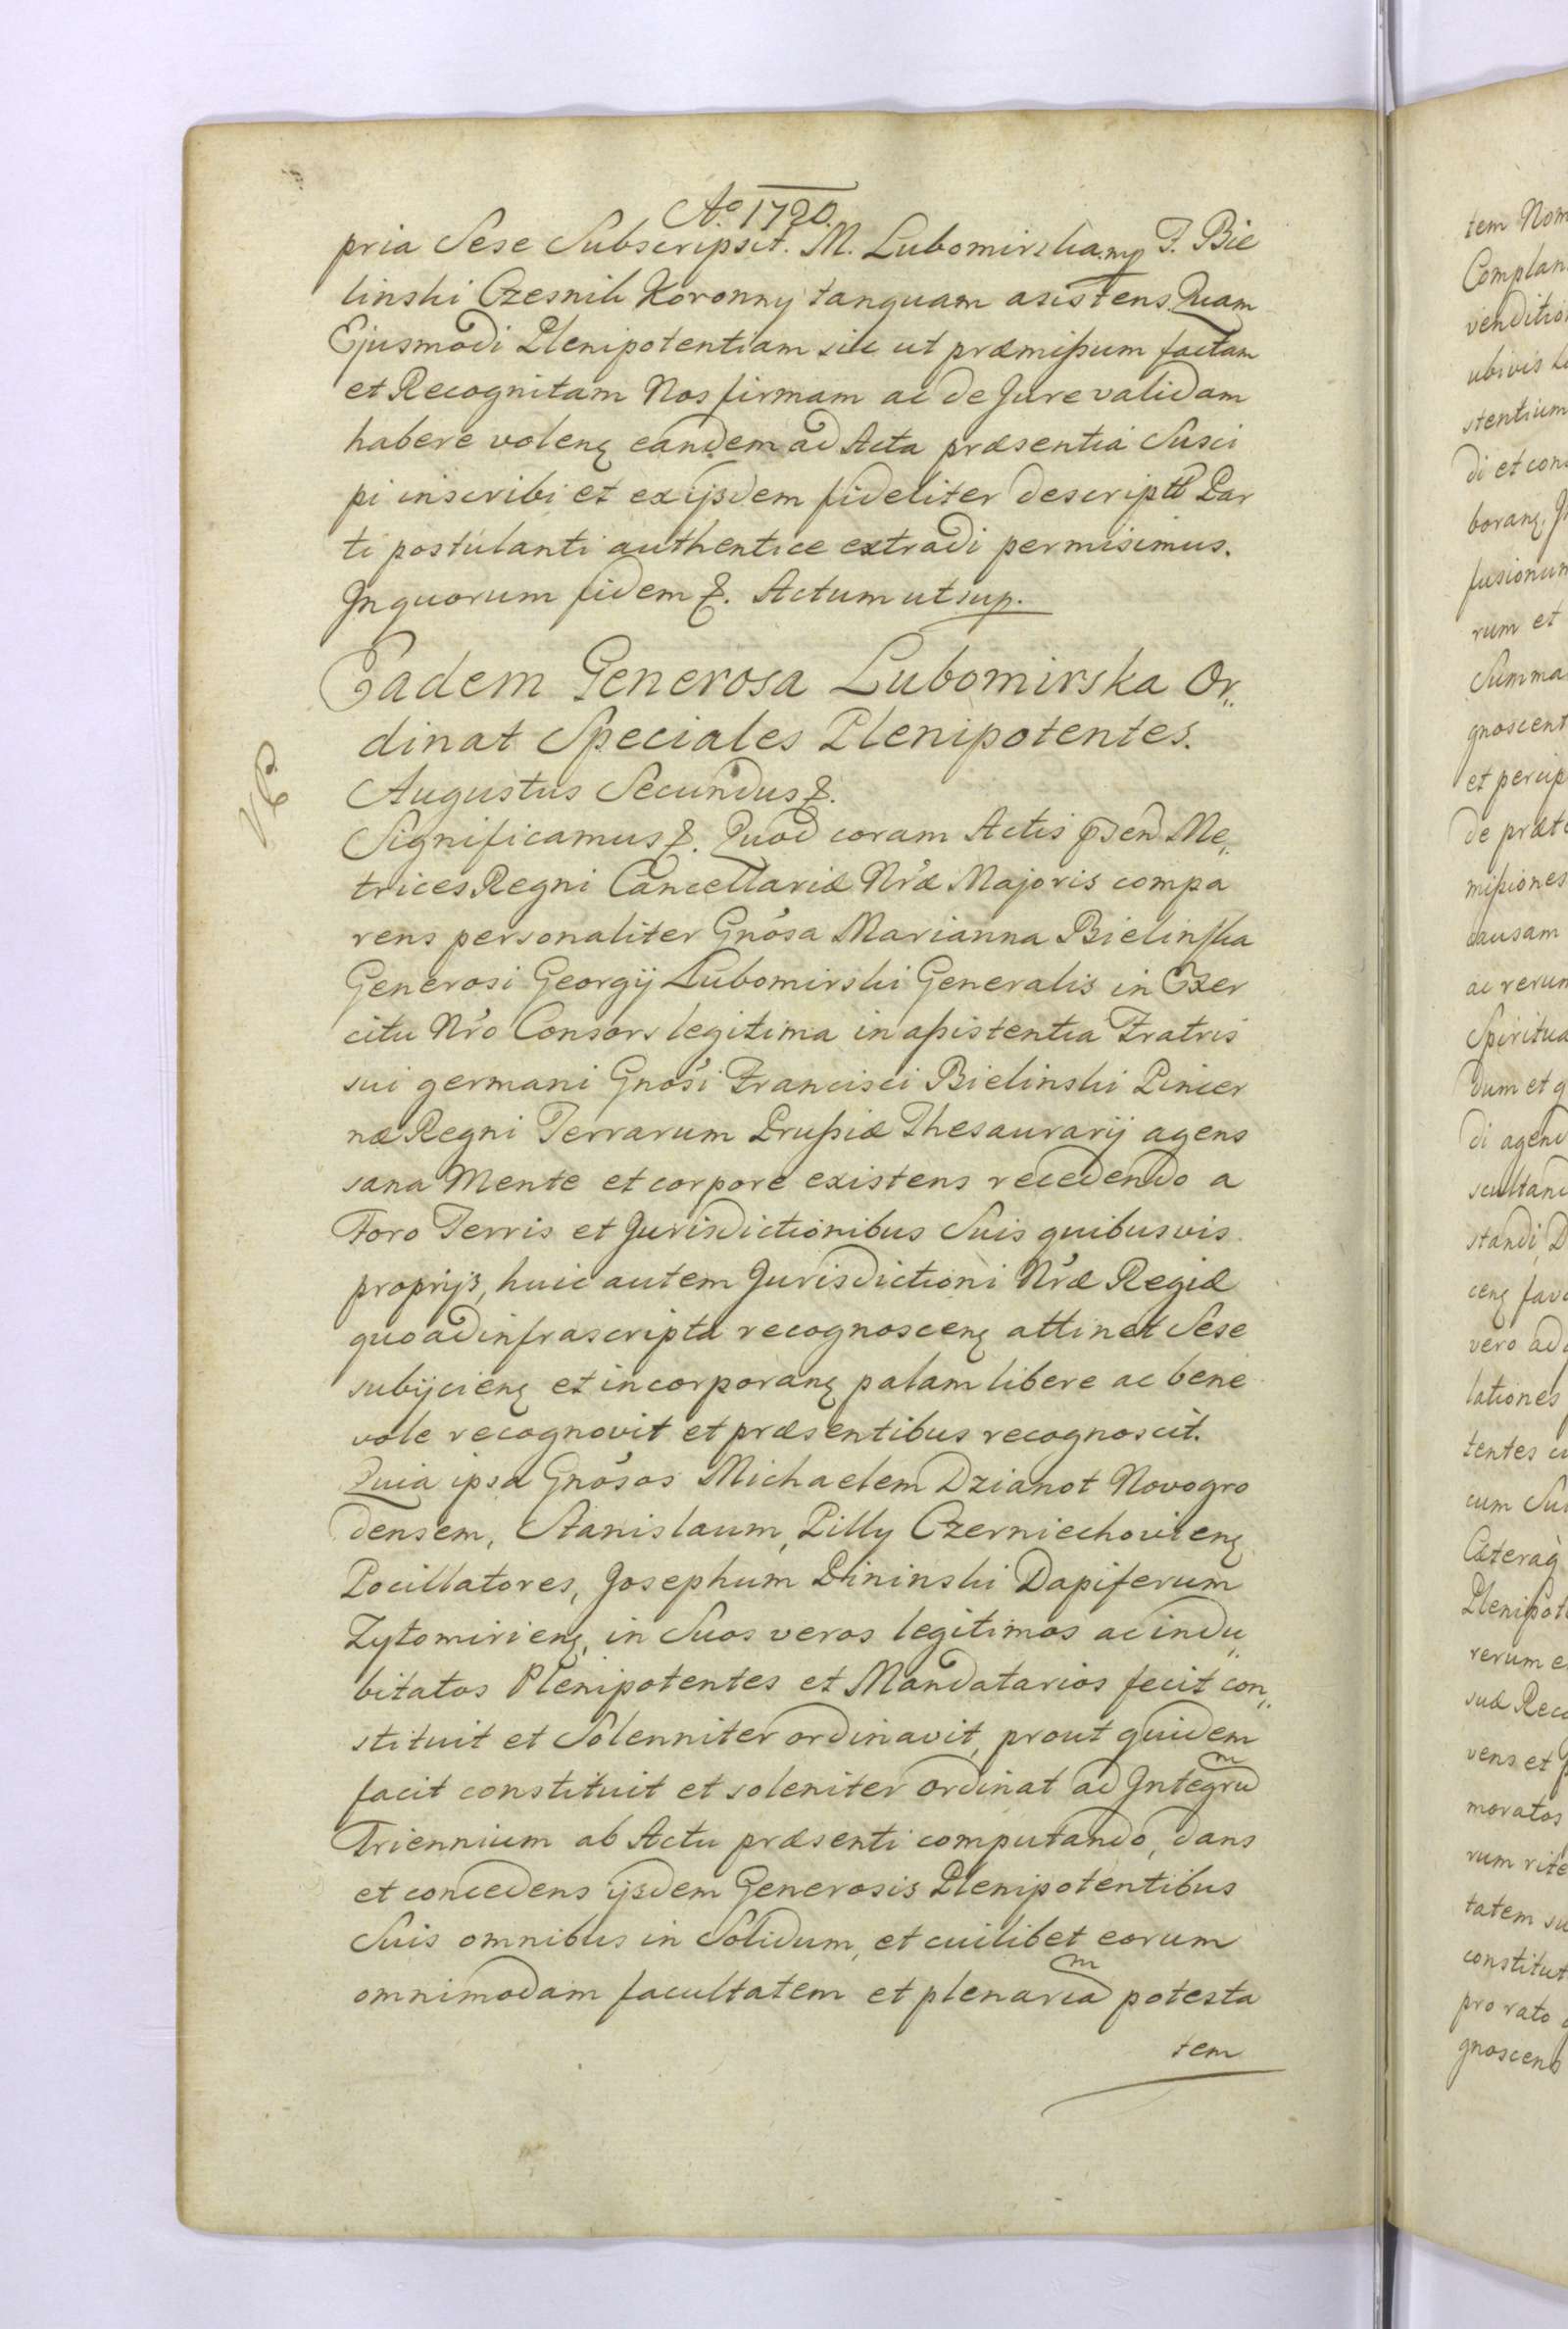 Aº 1720.
pria Sese Subscripsit. M. Lubomirska mp F. Bie
linski Czesnik Koronny tanquam asistens. Quam
Ejusmodi Plenipotentiam sic ut præmißum factam
et Recognitam Nos firmam ac de Jure validam
habere volenꝫ eandem ad Acta præsentia Susci
pi inscribi et ex ijsdem fideliter descriptã Par
ti postulanti authentice extradi permisimus.
In quorum fidem &. Actum ut sup.
Eadem Generosa Lubomirska Or„
dinat Speciales Plenipotentes.
Augustus Secundus &.
Significamus &. Quod coram Actis psen Me„
trices Regni Cancellariæ Nræ Majoris compa
rens personaliter Gnosa Marianna Bielinska
Generosi Georgij Lubomirski Generalis in Exer
citu Nro Consors legitima in aßistentia Fratris
sui germani Gnosi Francisci Bielinski Pincer
næ Regni Terrarum Prußiæ Thesaurarij agens
sana Mente et corpore existens recedendo a
Foro Terris et Jurisdictionibus Suis quibusvis
proprijs, huic autem Jurisdictioni Nræ Regiæ
quoad infrascripta recognoscenꝫ attinet Sese
subijcienꝫ et incorporanꝫ palam libere ac bene
vole recognovit et præsentibus recognoscit.
Quia ipsa Gnosos Michaelem Dzianot Novogro
densem, Stanislaum, Pilly Czerniechovienꝫ
Pocillatores, Josephum Dininski Dapiferum
Zytomirienꝫ, in Suos veros legitimos ac indu„
bitatos Plenipotentes et Mandatarios fecit con„
stituit et Solenniter ordinavit, prout quidem
facit constituit et soleniter ordinat ad Integrum
Triennium ab Actu præsenti computando, dans
et concedens ijsdem Generosis Plenipotentibus
Suis omnibus in Solidum, et cuilibet eorum
omnimodam facultatem et plenariam potesta
tem